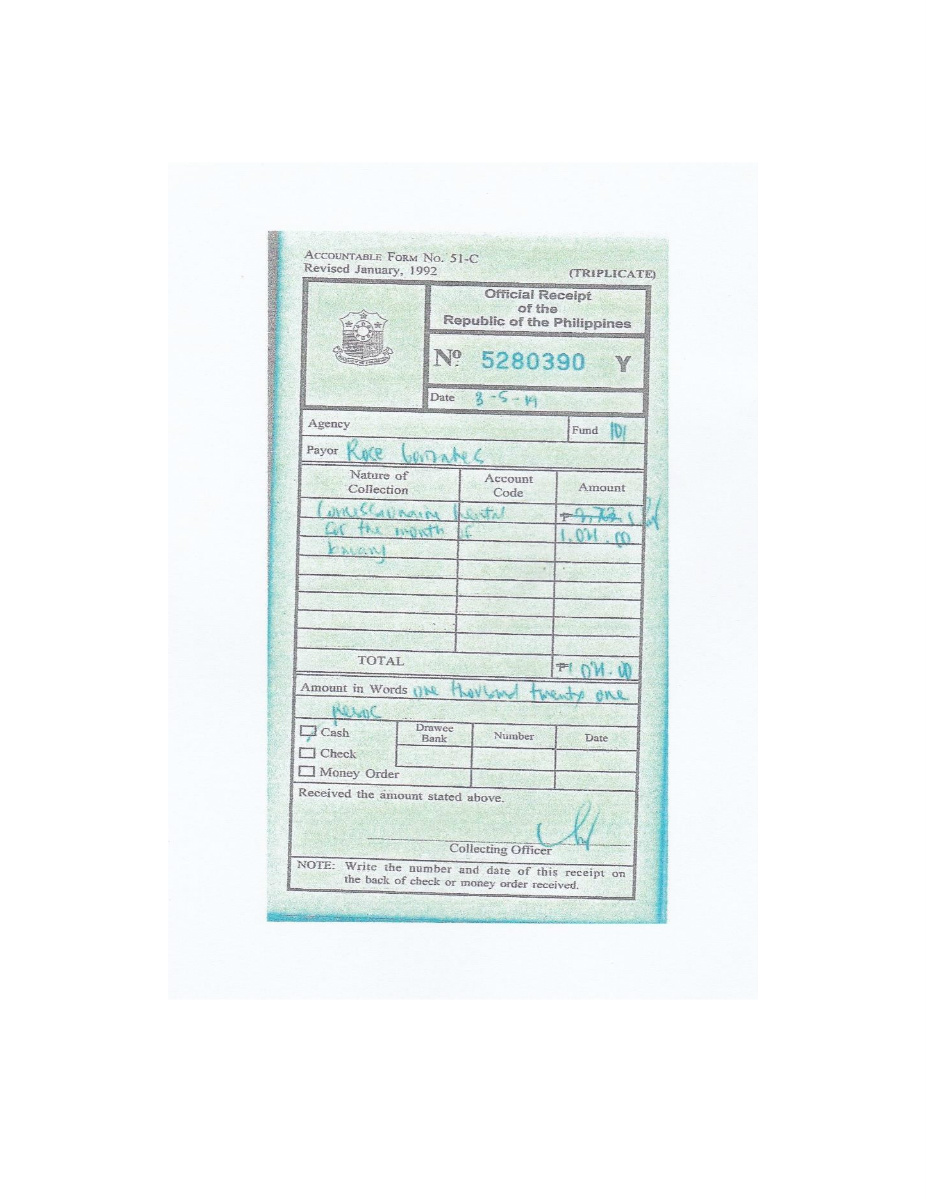 ACCOUNTABLE FORM No. 51-C
Revised January, 1992 (TRIPLICATE)
Official Receipt
of the
Republic of the Philippines
Nº 5280390 Y
Date 3-5-19
Agency
Fund 101
Payor Rose
Nature of Collection
Account Code
Amount
Rental
for the month of
1,021.00
TOTAL ₱1,021.00
Amount in Words one thousand twenty one
pesos
Cash
Check
Money Order
Drawee Bank
Number
Date
Received the amount stated above.
Collecting Officer
NOTE: Write the number and date of this receipt on
the back of check or money order received.